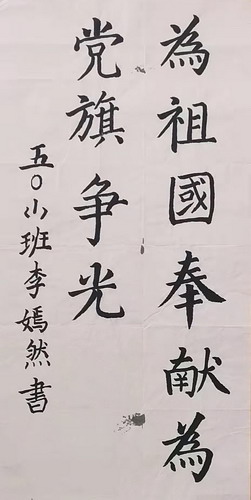 為祖國奉献為
党旗争光
五〇小班李嫣然書